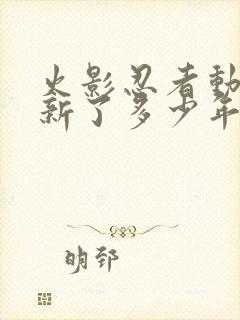 火影忍者動
新了多少年
明郅